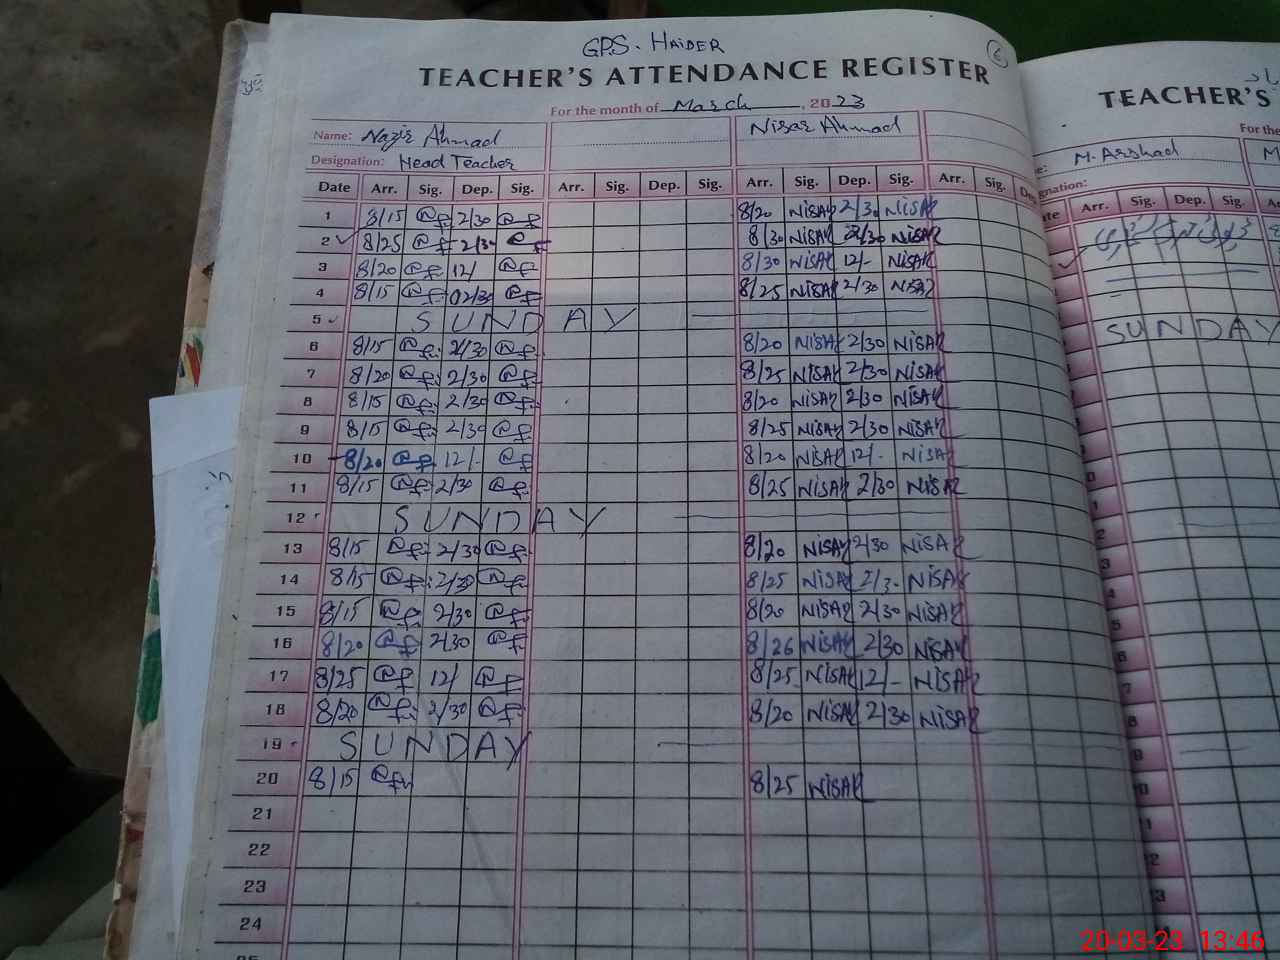 GPS. HAIDER
6
TEACHER'S ATTENDANCE REGISTER
For the month of March, 2023
Name: Nazir Ahmad Nisar Ahmad
Designation: Head Teacher
Date Arr. Sig. Dep. Sig. Arr. Sig. Dep. Sig. Arr. Sig. Dep. Sig. Arr. Sig. Dep
1 8/15 2/30 8/20 NISAR 2/30 NISAR
2 8/25 2/30 8/30 NISAR 2/30 NISAR
3 8/20 12/ 8/30 NISAR 12/- NISAR
4 8/15 02/30 8/25 NISAR 2/30 NISAR
5 SUNDAY
6 8/15 2/30 8/20 NISAR 2/30 NISAR
7 8/20 2/30 8/25 NISAR 2/30 NISAR
8 8/15 2/30 8/20 NISAR 2/30 NISAR
9 8/15 2/30 8/25 NISAR 2/30 NISAR
10 8/20 12/- 8/20 NISAR 12/- NISAR
11 8/15 2/30 8/25 NISAR 2/30 NISAR
12 SUNDAY
13 8/15 2/30 8/20 NISAR 2/30 NISAR
14 8/15 2/30 8/25 NISAR 2/3- NISAR
15 8/15 2/30 8/20 NISAR 2/30 NISAR
16 8/20 2/30 8/26 NISAR 2/30 NISAR
17 8/25 12/ 8/25 NISAR 12/- NISAR
18 8/20 2/30 8/20 NISAR 2/30 NISAR
19 SUNDAY
20 8/15 8/25 NISAR
21
22
23
24
TEACHER'S
For the
M. Arshad
Arr. Sig. Dep. Sig.
SUNDAY
20-03-23 13:46